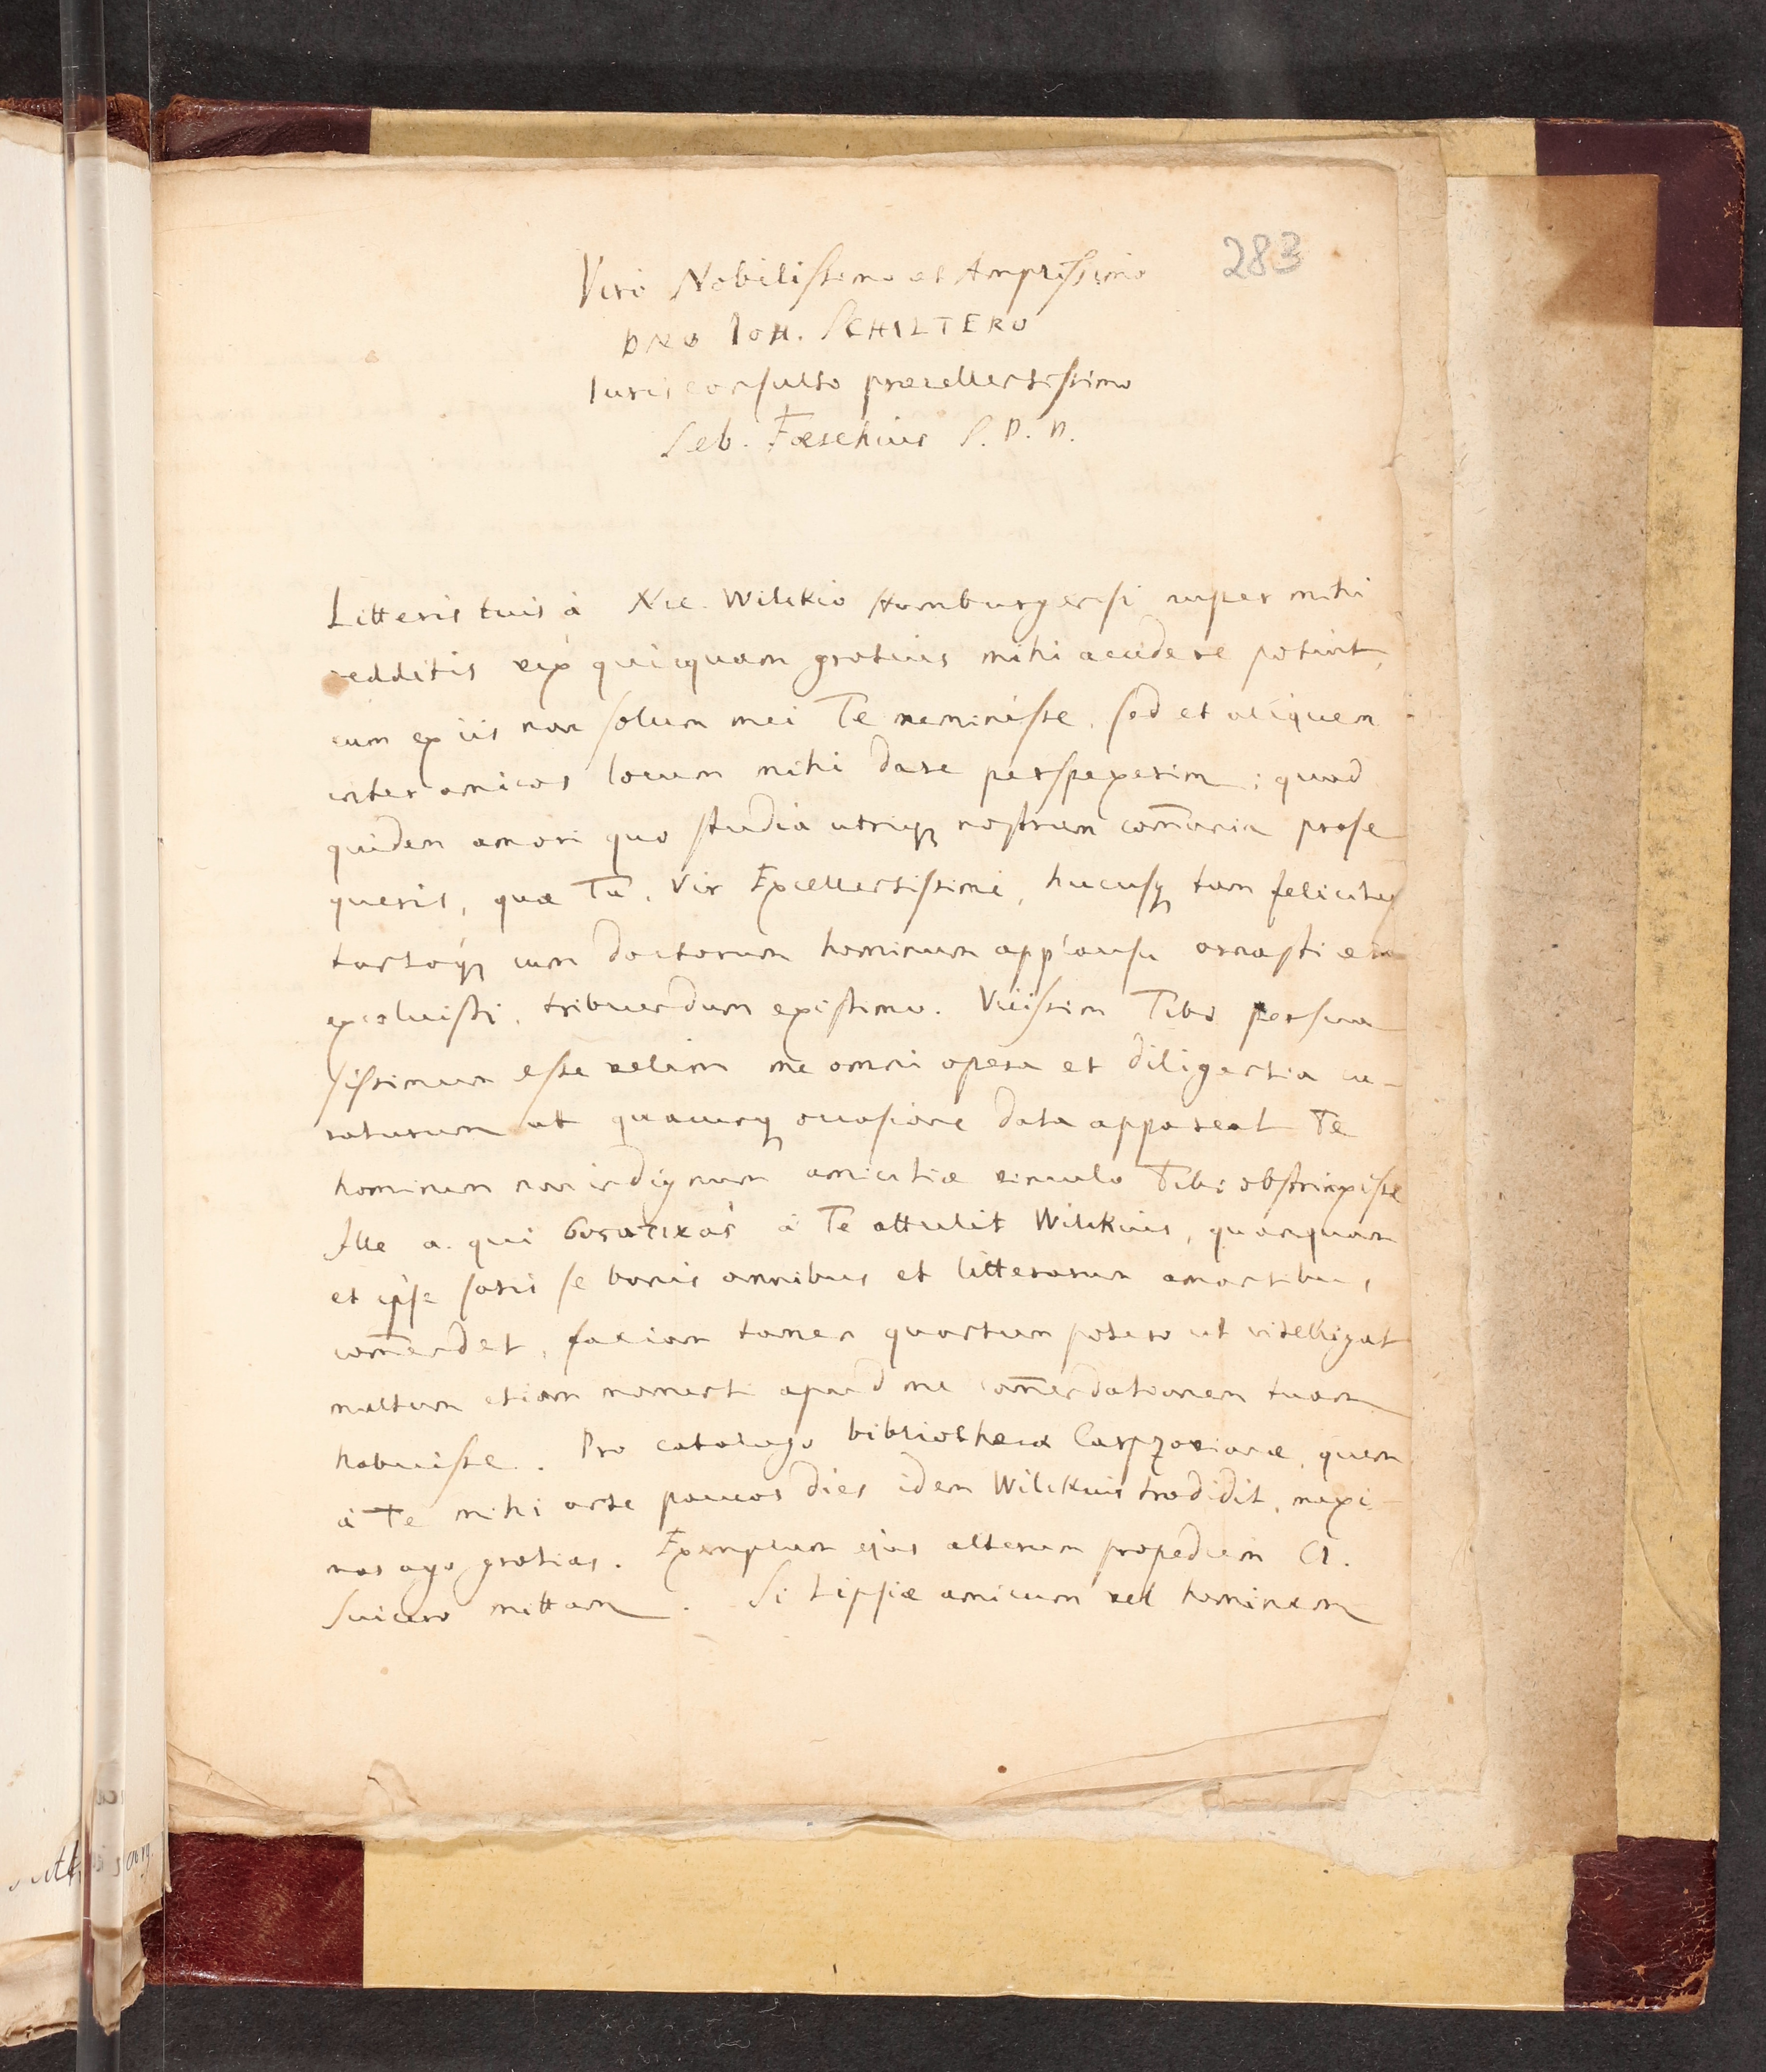 283
Viro Nobilissimo et Amplissimo
DNO IOH. SCHILTERO
Iurisconsulto præcellentissimo
Seb. Fæschius S. P. D.
Litteris tuis à Nic. Wilckio Hamburgensi nuper mihi
redditis vix quicquam gratius mihi accidere potuit,
cum ex iis non solum mei Te meminisse, sed et aliquem
inter amicos locum mihi dare perspexerim; quod
quidem amori quo studia utriq₃ nostrum com̄unia prose
queris, quæ Tu, Vir Excellentissime, hucusq₃ tam feliciter
tantoq́₃ cum doctorum hominum applausu ornasti et
excoluisti, tribuendum existimo. Vicissim Tibi persua
sissimum esse velim me omni opera et diligentia cu-
raturum ut quacunq₃ occasione data appareat Te
hominem non indignum amicitiæ vinculo Tibi obstrinxisse
Ille a. qui συστατικὰς à Te attulit Wilckius, quanquam
et ipse satis se bonis omnibus et litterarum amantibus,
com̄endet, faciam tamen quantum potero ut intelligat
multum etiam momenti apud me com̄endationem tuam
habuisse. Pro catalogo bibliothecæ Carpzovianæ, quem
à Te mihi ante paucos dies idem Wilckius tradidit, maxi-
mas ago gratias. Exemplum ejus alterum propediem Cl.
Suicero mittam. Si Lipsiæ amicum vel hominem